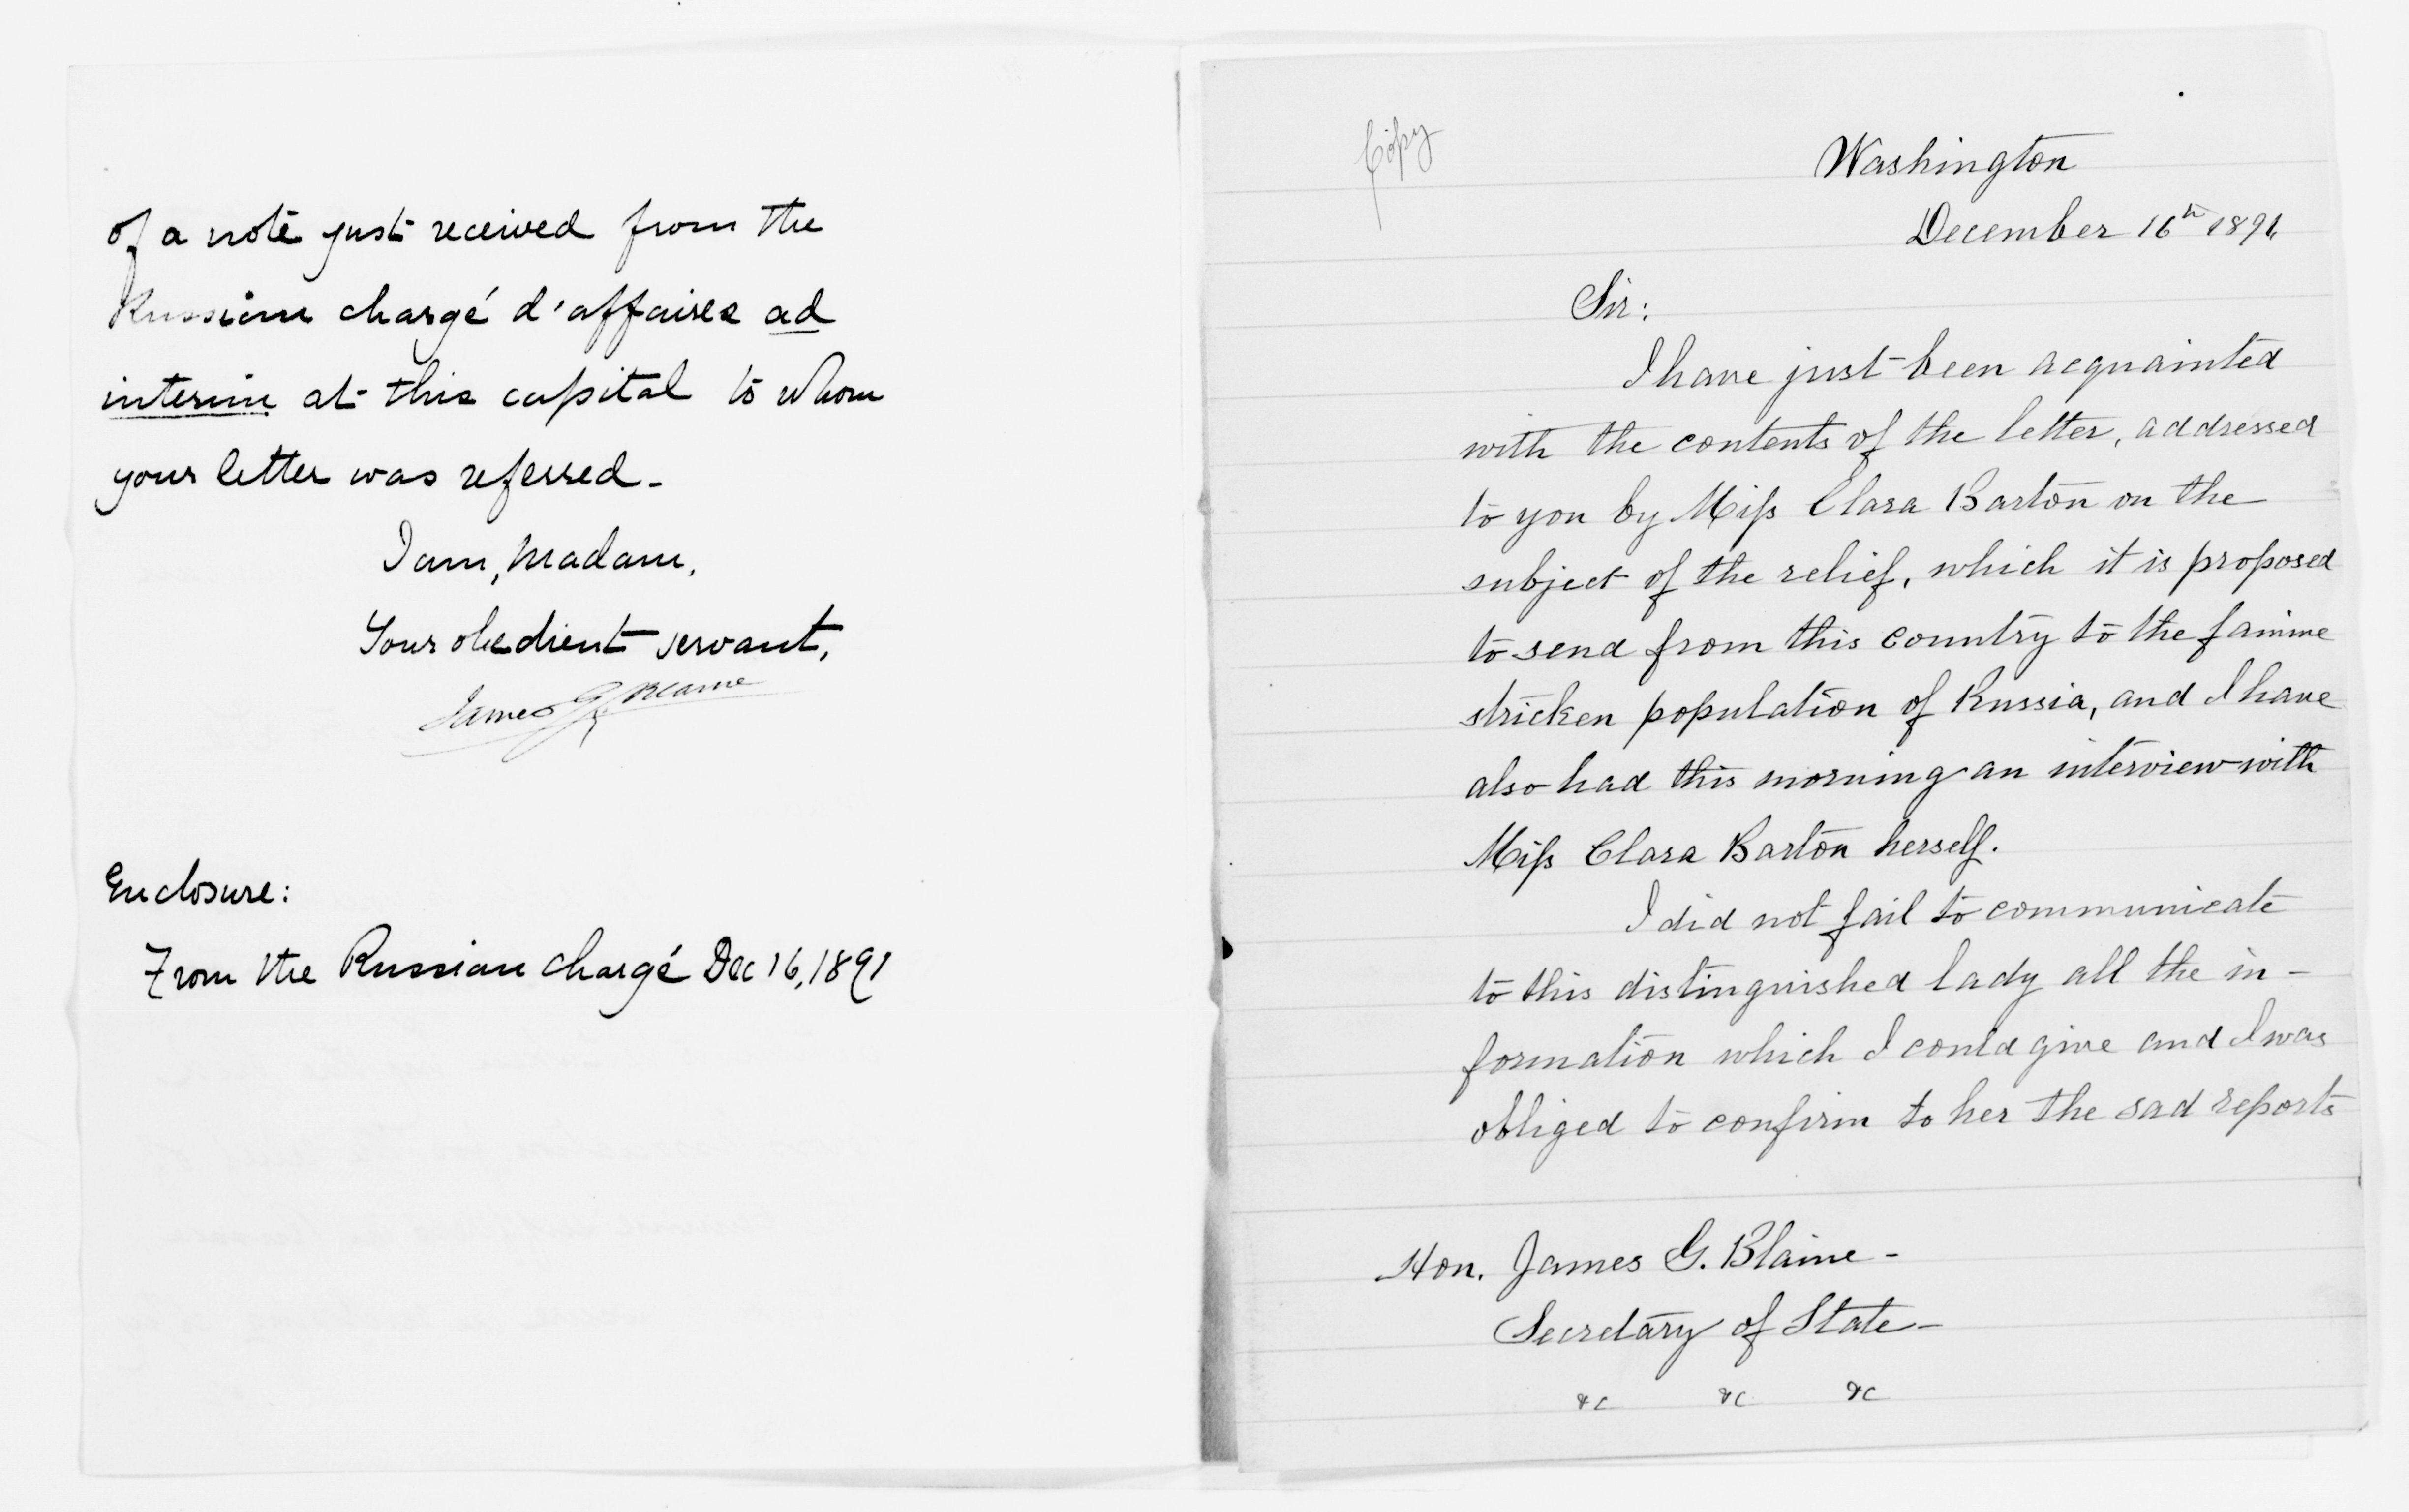 of a note just received from the
Russian chargé d'affaires ad
interim at this capital to whom
your letter was referred-
I am, Madam,
Your obedient servant,
James G. Blaine
Enclosure:
From the Russian chargé Dec 16, 1891
Copy
Washington
December 16th 1891,
Sir:
I have just been acquainted
with the contents of the letter, addressed
to you by Miss Clara Barton on the
subject of the relief, which it is proposed
to send from this country to the famine
stricken population of Russia, and I have
also had this morning an interview with
Miss Clara Barton herself.
I did not fail to communicate
to this distinguished lady all the in-
formation which I could give and I was
obliged to confirm to her the sad reports
Hon. James G. Blaine-
Secretary of State-
&c &c &c